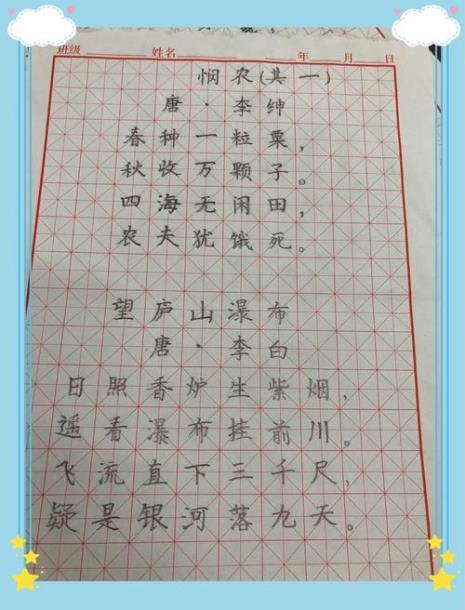 班级 姓名 年 月 日
悯农(其一)
唐·李绅
春种一粒粟，
秋收万颗子。
四海无闲田，
农夫犹饿死。
望庐山瀑布
唐·李白
日照香炉生紫烟，
遥看瀑布挂前川。
飞流直下三千尺，
疑是银河落九天。